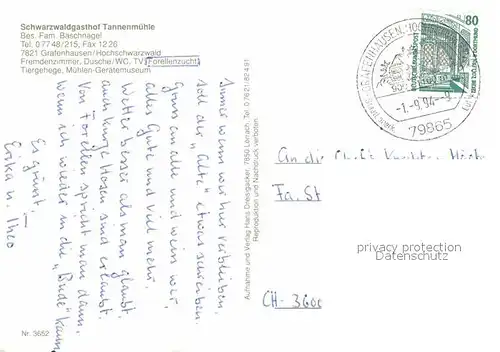 Schwarzwaldgasthof Tannenmühle
Bes. Fam. Baschnagel
Tel. 07748/215, Fax 1226
7821 Grafenhausen/Hochschwarzwald
Fremdenzimmer, Dusche/WC, TV, Forellenzucht,
Tiergehege, Mühlen-Gerätemuseum
Immer wenn wir hier verbleiben,
soll der "Alte" etwas schreiben.
Gruss an alle und wein wer,
alles Gute und viel mehr.
Wetter besser als man glaubt,
auch kurze Hosen sind erlaubt.
Von Forellen spricht man dann,
wenn ich wieder in die "Bude" kann
Es grüsst
Erika u. Theo
Nr. 3652
Aufnahme und Verlag Hans Dreisgacker, 7850 Lörrach, Tel. 07621/8291
Reproduktion und Nachdruck verboten
GRAFENHAUSEN
-1.-9.94-9
79865
80
An die
Fa. St
CH-3600
privacy protection
Datenschutz